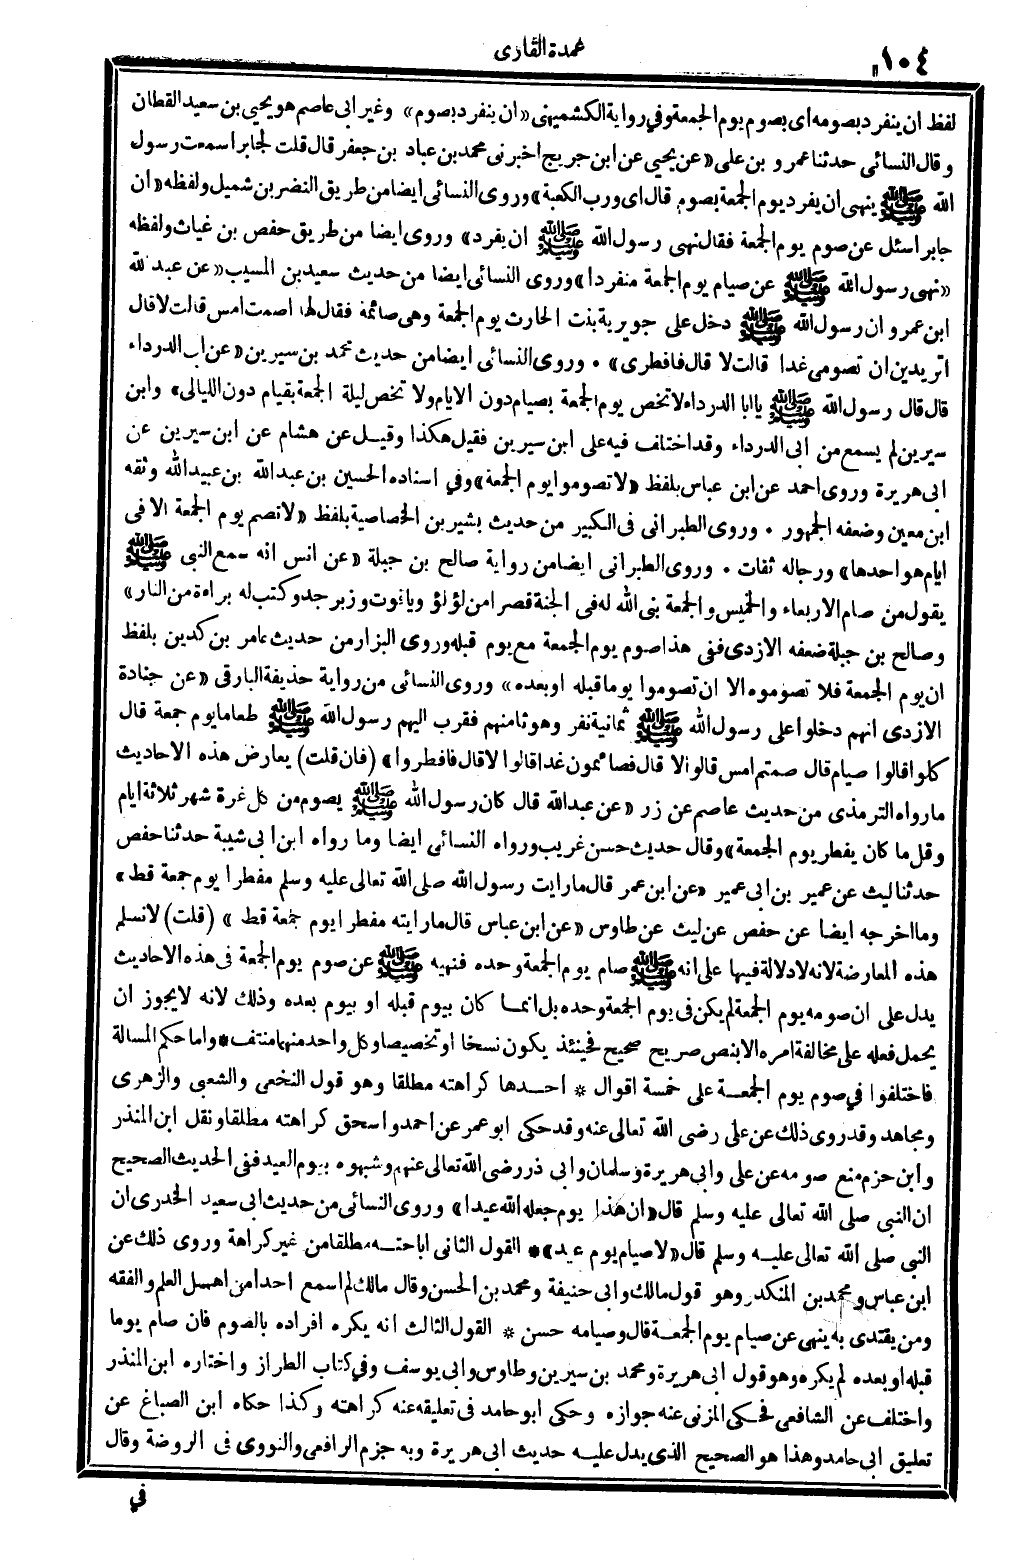 ١٠٤
عمدة القارى
لفظ ان ينفرد بصومه اى بصوم يوم الجمعة وفي رواية الكشميهنى «ان ينفرد بصوم» وغير ابى عاصم هو يحيى بن سعيد القطان
وقال النسائى حدثنا عمرو بن على «عن يحيى عن ابن جريج اخبرنى محمد بن عباد بن جعفر قال قلت لجابر اسمعت رسول
الله ﷺ ينهى ان يفرد يوم الجمعة بصوم قال اى ورب الكعبة» وروى النسائى ايضا من طريق النضر بن شميل ولفظه «ان
جابرا سئل عن صوم يوم الجمعة فقال نهى رسول الله ﷺ ان يفرد» وروى ايضا من طريق حفص بن غياث ولفظه
«نهى رسول الله ﷺ عن صيام يوم الجمعة منفردا» وروى النسائى ايضا من حديث سعيد بن المسيب «عن عبد الله
ابن عمرو ان رسول الله ﷺ دخل على جويرية بنت الحارث يوم الجمعة وهى صائمة فقال لها اصمت امس قالت لا قال
اتريدين ان تصومى غدا قالت لا قال فافطرى» ٠ وروى النسائى ايضا من حديث محمد بن سيرين «عن ابى الدرداء
قال قال رسول الله ﷺ يا ابا الدرداء لا تخص يوم الجمعة بصيام دون الايام ولا تخص ليلة الجمعة بقيام دون الليالى» وابن
سيرين لم يسمع من ابى الدرداء وقد اختلف فيه على ابن سيرين فقيل هكذا وقيل عن هشام عن ابن سيرين عن
ابى هريرة وروى احمد عن ابن عباس بلفظ «لا تصوموا يوم الجمعة» وفي اسناده الحسين بن عبد الله بن عبيد الله وثقه
ابن معين وضعفه الجمهور ٠ وروى الطبرانى فى الكبير من حديث بشير بن الخصاصية بلفظ «لا تصم يوم الجمعة الا فى
ايام هو احدها» ورجاله ثقات ٠ وروى الطبرانى ايضا من رواية صالح بن جبلة «عن انس انه سمع النبى ﷺ
يقول من صام الاربعاء والخميس والجمعة بنى الله له فى الجنة قصرا من لؤلؤ وياقوت وزبرجد وكتب له براءة من النار»
وصالح بن جبلة ضعفه الازدى ففى هذا صوم يوم الجمعة مع يوم قبله وروى البزار من حديث عامر بن كدين بلفظ
ان يوم الجمعة فلا تصوموه الا ان تصوموا يوما قبله او بعده» وروى النسائى من رواية حذيفة البارقى «عن جنادة
الازدى انهم دخلوا على رسول الله ﷺ ثمانية نفر وهو ثامنهم فقرب اليهم رسول الله ﷺ طعاما يوم جمعة قال
كلوا قالوا صيام قال صمتم امس قالوا لا قال فصائمون غدا قالوا لا قال فافطروا» (فان قلت) يعارض هذه الاحاديث
ما رواه الترمذى من حديث عاصم عن زر «عن عبد الله قال كان رسول الله ﷺ يصوم من كل غرة شهر ثلاثة ايام
وقل ما كان يفطر يوم الجمعة» وقال حديث حسن غريب ورواه النسائى ايضا وما رواه ابن ابى شيبة حدثنا حفص
حدثنا ليث عن عمير بن ابى عمير «عن ابن عمر قال ما رايت رسول الله صلى الله تعالى عليه وسلم مفطرا يوم جمعة قط»
وما اخرجه ايضا عن حفص عن ليث عن طاوس «عن ابن عباس قال ما رايته مفطرا يوم جمعة قط» (قلت) لا نسلم
هذه المعارضة لانه لا دلالة فيها على انه ﷺ صام يوم الجمعة وحده فنهيه ﷺ عن صوم يوم الجمعة فى هذه الاحاديث
يدل على ان صومه يوم الجمعة لم يكن فى يوم الجمعة وحده بل انما كان بيوم قبله او بيوم بعده وذلك لانه لا يجوز ان
يحمل فعله على مخالفة امره الا بنص صريح صحيح فحينئذ يكون نسخا او تخصيصا وكل واحد منهما منتف * واما حكم المسالة
فاختلفوا في صوم يوم الجمعة على خمسة اقوال * احدها كراهته مطلقا وهو قول النخعى والشعبى والزهرى
ومجاهد وقد روى ذلك عن على رضى الله تعالى عنه وقد حكى ابو عمر عن احمد واسحق كراهته مطلقا ونقل ابن المنذر
وابن حزم منع صومه عن على وابى هريرة وسلمان وابى ذر رضى الله تعالى عنهم وشبهوه بيوم العيد ففى الحديث الصحيح
ان النبى صلى الله تعالى عليه وسلم قال «ان هذا يوم جعله الله عيدا» وروى النسائى من حديث ابى سعيد الخدرى ان
النبى صلى الله تعالى عليه وسلم قال «لا صيام يوم عيد» * القول الثانى اباحته مطلقا من غير كراهة وروى ذلك عن
ابن عباس ومحمد بن المنكدر وهو قول مالك وابى حنيفة ومحمد بن الحسن وقال مالك لم اسمع احدا من اهل العلم والفقه
ومن يقتدى به ينهى عن صيام يوم الجمعة قال وصيامه حسن * القول الثالث انه يكره افراده بالصوم فان صام يوما
قبله او بعده لم يكره وهو قول ابى هريرة ومحمد بن سيرين وطاوس وابى يوسف وفي كتاب الطراز واختاره ابن المنذر
واختلف عن الشافعى فحكى المزنى عنه جوازه وحكى ابو حامد فى تعليقه عنه كراهته وكذا حكاه ابن الصباغ عن
تعليق ابى حامد وهذا هو الصحيح الذى يدل عليه حديث ابى هريرة وبه جزم الرافعى والنووى فى الروضة وقال
في